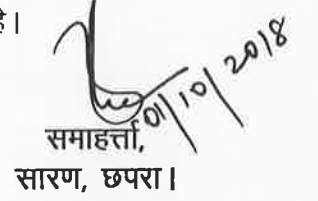 है।
01/10/2018
समाहर्त्ता,
सारण, छपरा।